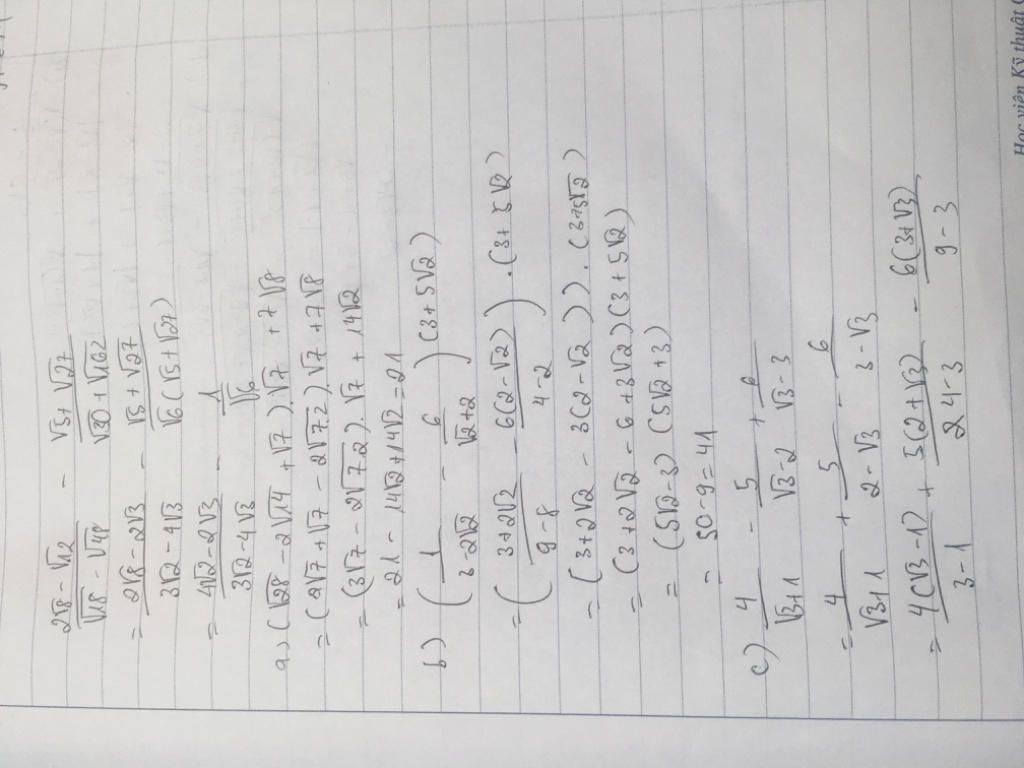 2√8 - √12 / √18 - √48 - √5 + √27 / √30 + √162
= 2√8 - 2√3 / 3√2 - 4√3 - √5 + √27 / √6(√5 + √27)
= 4√2 - 2√3 / 3√2 - 4√3 - 1 / √6
a) (√28 - 2√14 + √7).√7 + 7√8
= (2√7 + √7 - 2√7.2).√7 + 7√8
= (3√7 - 2√7 2).√7 + 14√2
= 21 - 14√2 + 14√2 = 21
b) (1 / 3 - 2√2 - 6 / √2 + 2) (3 + 5√2)
= (3 + 2√2 / 9 - 8 - 6(2 - √2) / 4 - 2).(3 + 5√2)
= (3 + 2√2 - 3(2 - √2)).(3 + 5√2)
= (3 + 2√2 - 6 + 3√2)(3 + 5√2)
= (5√2 - 3)(5√2 + 3)
= 50 - 9 = 41
c) 4 / √3+1 - 5 / √3 - 2 + 6 / √3 - 3
= 4 / √3+1 + 5 / 2 - √3 - 6 / 3 - √3
= 4(√3 - 1) / 3 - 1 + 5(2 + √3) / 4 - 3 - 6(3 + √3) / 9 - 3
Học viện Kỹ thuật